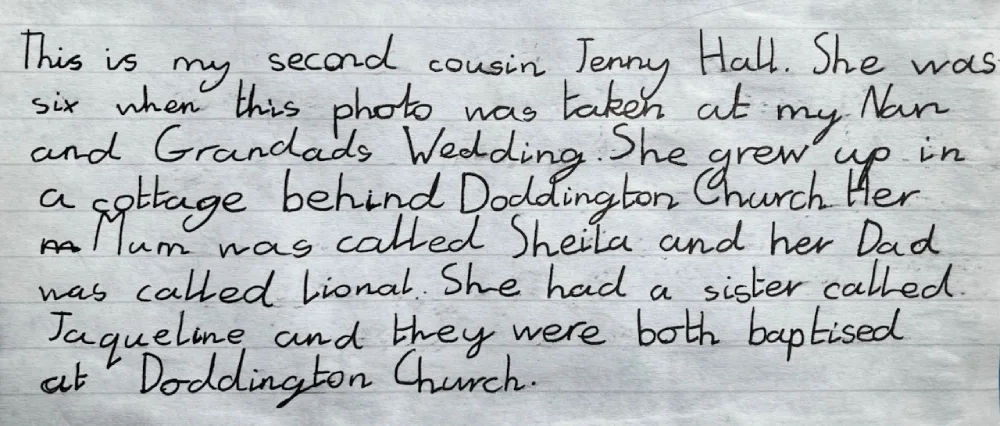 This is my second cousin Jenny Hall. She was
six when this photo was taken at my Nan
and Grandads Wedding. She grew up in
a cottage behind Doddington Church Her
Mum was called Sheila and her Dad
was called Lional. She had a sister called
Jaqueline and they were both baptised
at Doddington Church.